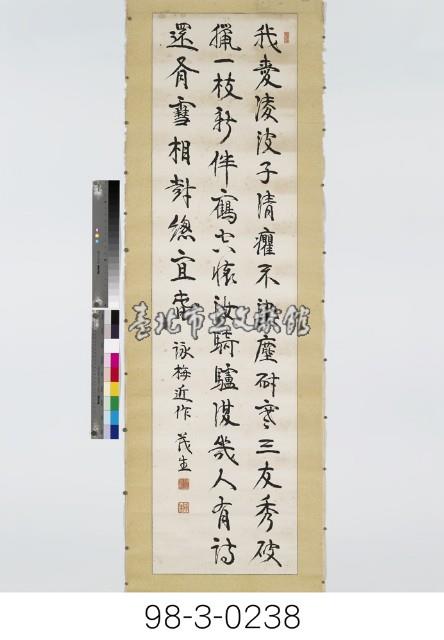 我愛凌波子清癯不染塵耐寒三友秀破
臘一枝新伴鶴空懷汝騎驢復幾人有詩
還有雪相對總宜春
詠梅近作 茂生
臺北市立文獻館
98-3-0238